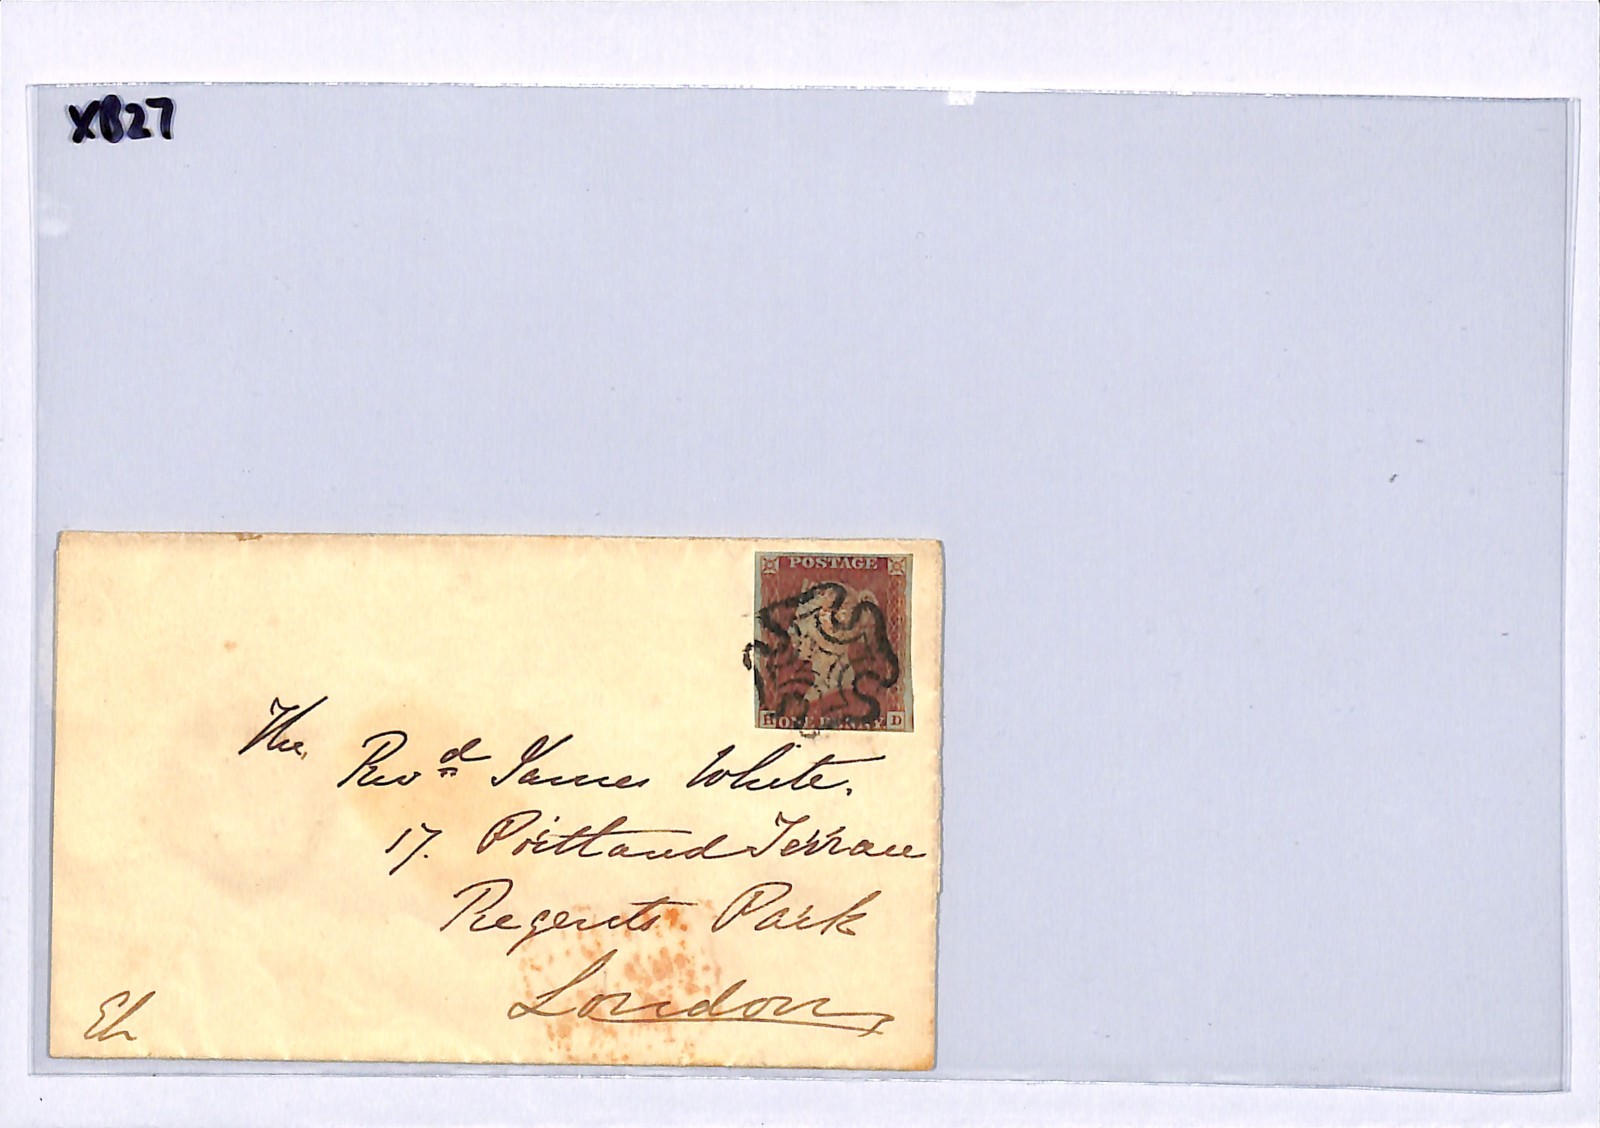 XB27
POSTAGE
H ONE PENNY D
The
Revd James White.
17. Portland Terrace
Regents Park
London